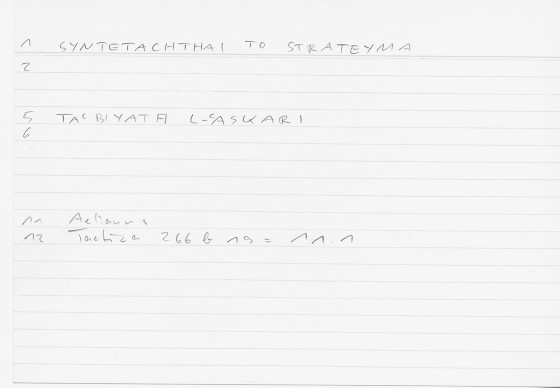 1 SYNTETACHTHAI TO STRATEYMA
2
5 TAʿBIYATA L-ʿASKARI
6
11 Aelianus
12 Tactica 266 b 19 = 11.1